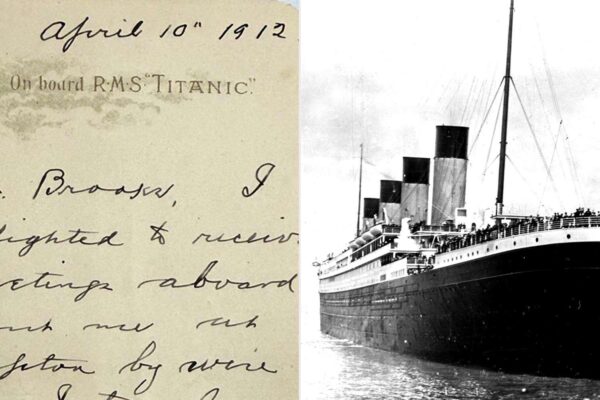 April 10" 1912
On board R·M·S "TITANIC".
Brooks, I
lighted to receiv
etings aboard
ent me at
pton by wire